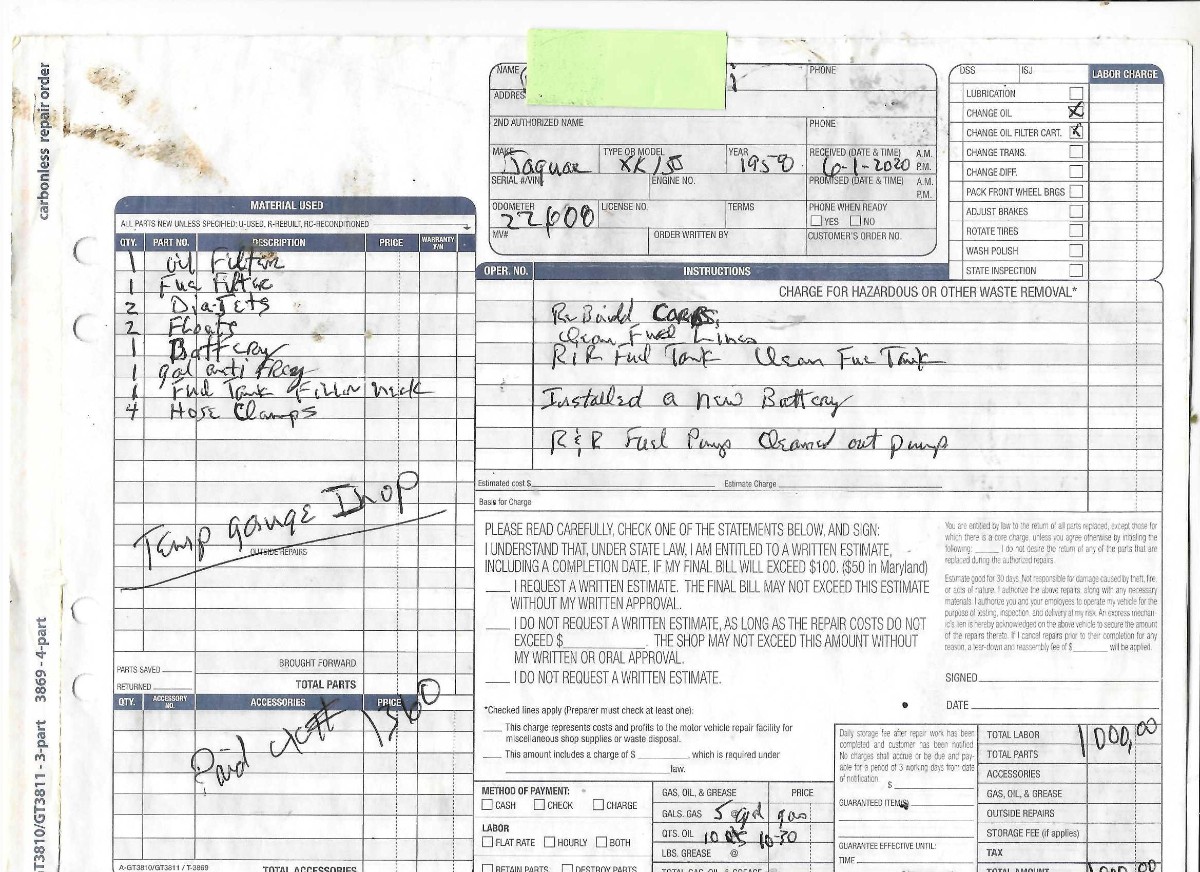 carbonless repair order
3869 - 4-part
GT3810/GT3811 - 3-part
NAME
PHONE
ADDRES
2ND AUTHORIZED NAME
PHONE
MAKE
TYPE OR MODEL
YEAR
RECEIVED (DATE & TIME) A.M.
P.M.
Jaguar XK150 1958 6-1-2020
SERIAL #/VIN
ENGINE NO.
PROMISED (DATE & TIME) A.M.
P.M.
ODOMETER
LICENSE NO.
TERMS
PHONE WHEN READY
22,600
YES NO
MV#
ORDER WRITTEN BY
CUSTOMER'S ORDER NO.
DSS ISJ LABOR CHARGE
LUBRICATION
CHANGE OIL X
CHANGE OIL FILTER CART. X
CHANGE TRANS.
CHANGE DIFF.
PACK FRONT WHEEL BRGS
ADJUST BRAKES
ROTATE TIRES
WASH POLISH
STATE INSPECTION
MATERIAL USED
ALL PARTS NEW UNLESS SPECIFIED: U-USED, R-REBUILT, RC-RECONDITIONED
QTY. PART NO. DESCRIPTION PRICE WARRANTY Y/N
1 oil Filter
1 Fuel Filter
2 Floats
1 Battery
1 gal anti
1 Fuel Tank Filler neck
4 Hose Clamps
Temp gauge Inop
OUTSIDE REPAIRS
PARTS SAVED
BROUGHT FORWARD
RETURNED
TOTAL PARTS
QTY. ACCESSORY NO. ACCESSORIES PRICE
Paid ck# 1360
A-GT3810/GT3811 / T-3869
TOTAL ACCESSORIES
OPER. NO. INSTRUCTIONS
CHARGE FOR HAZARDOUS OR OTHER WASTE REMOVAL*
ReBuild CARBS,
Clean Fuel Lines
R&R Fuel Tank Clean Fue Tank
Installed a new Battery
R&R Fuel Pump Cleaned out pump
Estimated cost $ Estimate Charge
Basis for Charge
PLEASE READ CAREFULLY, CHECK ONE OF THE STATEMENTS BELOW, AND SIGN:
I UNDERSTAND THAT, UNDER STATE LAW, I AM ENTITLED TO A WRITTEN ESTIMATE,
INCLUDING A COMPLETION DATE, IF MY FINAL BILL WILL EXCEED $100. ($50 in Maryland)
I REQUEST A WRITTEN ESTIMATE. THE FINAL BILL MAY NOT EXCEED THIS ESTIMATE
WITHOUT MY WRITTEN APPROVAL.
I DO NOT REQUEST A WRITTEN ESTIMATE, AS LONG AS THE REPAIR COSTS DO NOT
EXCEED $ THE SHOP MAY NOT EXCEED THIS AMOUNT WITHOUT
MY WRITTEN OR ORAL APPROVAL.
I DO NOT REQUEST A WRITTEN ESTIMATE.
You are entitled by law to the return of all parts replaced, except those for
which there is a core charge, unless you agree otherwise by initialing the
following: I do not desire the return of any of the parts that are
replaced during the authorized repairs.
Estimate good for 30 days. Not responsible for damage caused by theft, fire,
or acts of nature. I authorize the above repairs, along with any necessary
materials. I authorize you and your employees to operate my vehicle for the
purpose of testing, inspection, and delivery at my risk. An express mechan-
ic's lien is hereby acknowledged on the above vehicle to secure the amount
of the repairs thereto. If I cancel repairs prior to their completion for any
reason, a tear-down and reassembly fee of $ will be applied.
SIGNED
DATE
*Checked lines apply (Preparer must check at least one):
This charge represents costs and profits to the motor vehicle repair facility for
miscellaneous shop supplies or waste disposal.
This amount includes a charge of $ , which is required under
law.
METHOD OF PAYMENT:
CASH CHECK CHARGE
LABOR
FLAT RATE HOURLY BOTH
RETAIN PARTS DESTROY PARTS
GAS, OIL, & GREASE PRICE
GALS. GAS 5 @ gal gas
QTS. OIL 10 qts 10-30
LBS. GREASE @
TOTAL GAS, OIL & GREASE
Daily storage fee after repair work has been
completed and customer has been notified.
No charges shall accrue or be due and pay-
able for a period of 3 working days from date
of notification.
$
GUARANTEED ITEM(S)
GUARANTEE EFFECTIVE UNTIL:
TIME
TOTAL LABOR 1000,00
TOTAL PARTS
ACCESSORIES
GAS, OIL, & GREASE
OUTSIDE REPAIRS
STORAGE FEE (if applies)
TAX
TOTAL AMOUNT 1000.00